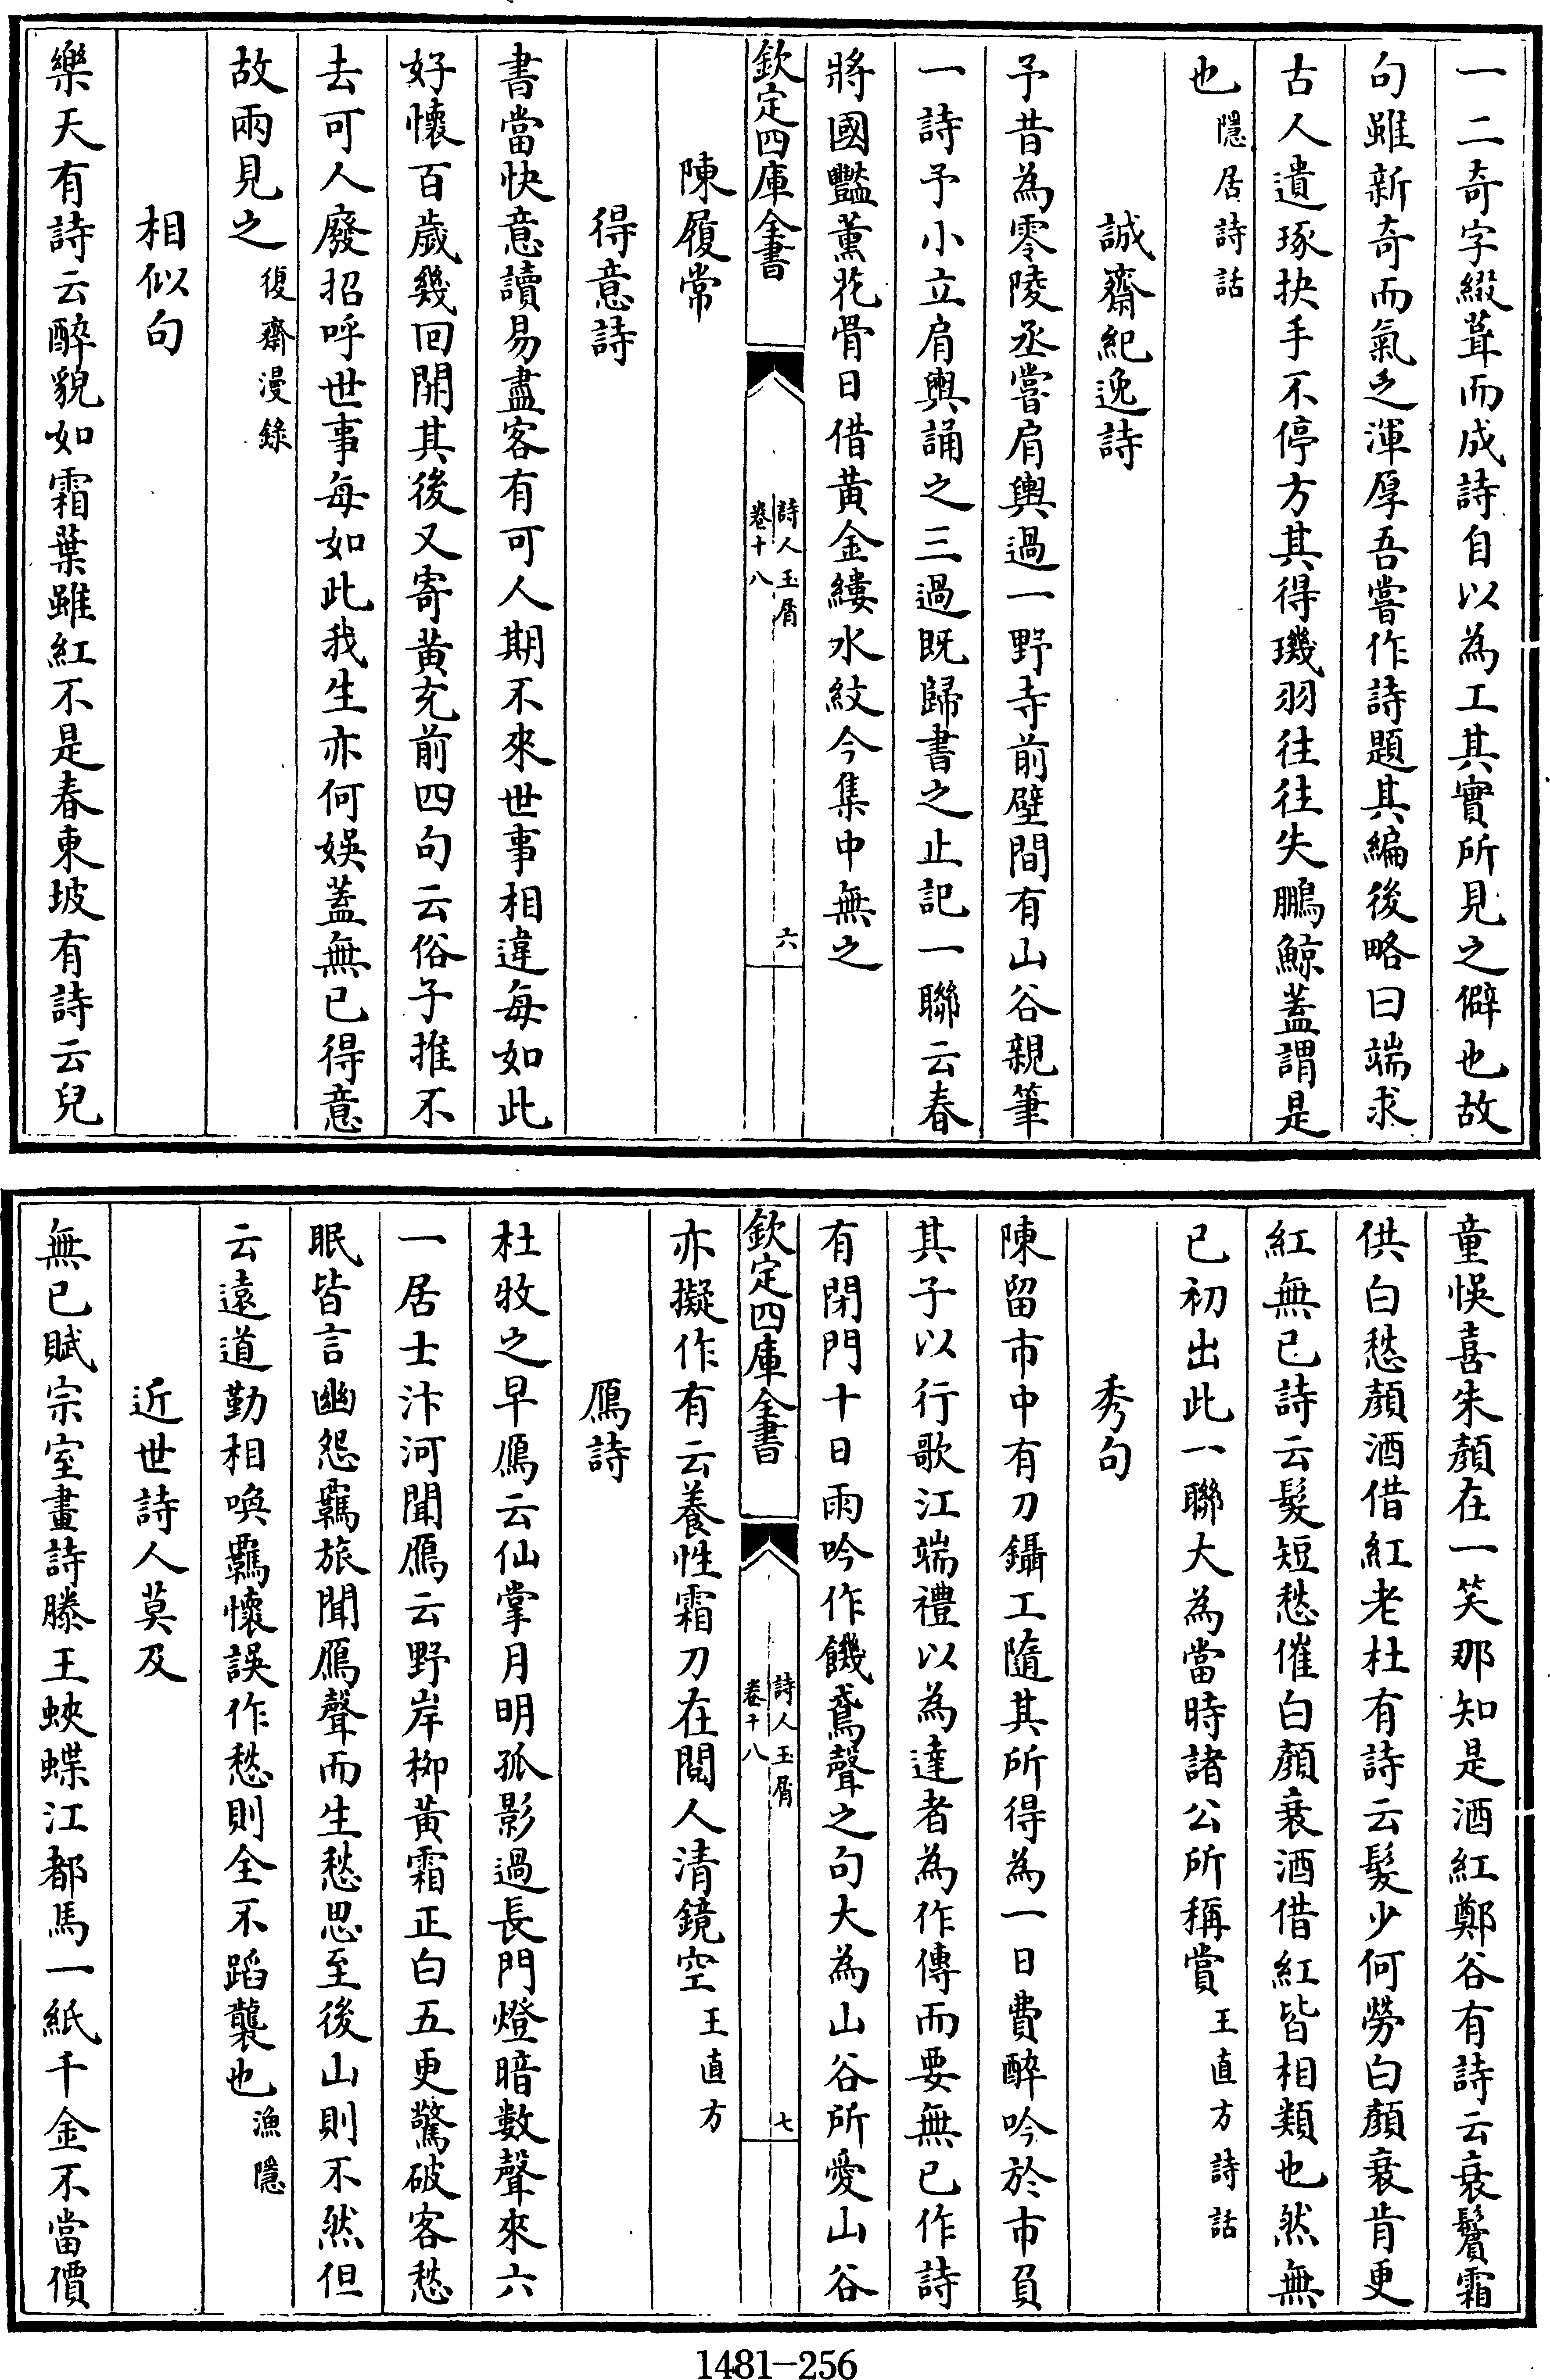 一二奇字綴葺而成詩自以為工其實所見之僻也故
句雖新奇而氣乏渾厚吾嘗作詩題其編後略曰端求
古人遺琢抉手不停方其得璣羽往往失鵬鯨蓋謂是
也隱居詩話
誠齋紀逸詩
予昔為零陵丞嘗肩輿過一野寺前壁間有山谷親筆
一詩予小立肩輿誦之三過既歸書之止記一聯云春
將國豔薰花骨日借黃金縷水紋今集中無之
欽定四庫全書
詩人玉屑
卷十八
六
陳履常
得意詩
書當快意讀易盡客有可人期不來世事相違每如此
好懷百歲幾回開其後又寄黃充前四句云俗子推不
去可人廢招呼世事每如此我生亦何娛蓋無已得意
故兩見之復齋漫錄
相似句
樂天有詩云醉貌如霜葉雖紅不是春東坡有詩云兒
童悞喜朱顏在一笑那知是酒紅鄭谷有詩云衰鬢霜
供白愁顏酒借紅老杜有詩云髮少何勞白顏衰肯更
紅無已詩云髮短愁催白顏衰酒借紅皆相類也然無
已初出此一聯大為當時諸公所稱賞王直方詩話
秀句
陳留市中有刀鑷工隨其所得為一日費醉吟於市負
其子以行歌江端禮以為達者為作傳而要無已作詩
有閉門十日雨吟作饑鳶聲之句大為山谷所愛山谷
欽定四庫全書
詩人玉屑
卷十八
七
亦擬作有云養性霜刀在閱人清鏡空王直方
鴈詩
杜牧之早鴈云仙掌月明孤影過長門燈暗數聲來六
一居士汴河聞鴈云野岸柳黃霜正白五更驚破客愁
眠皆言幽怨羈旅聞鴈聲而生愁思至後山則不然但
云遠道勤相喚羈懷誤作愁則全不蹈襲也漁隱
近世詩人莫及
無已賦宗室畫詩滕王蛺蝶江都馬一紙千金不當價
1481-256